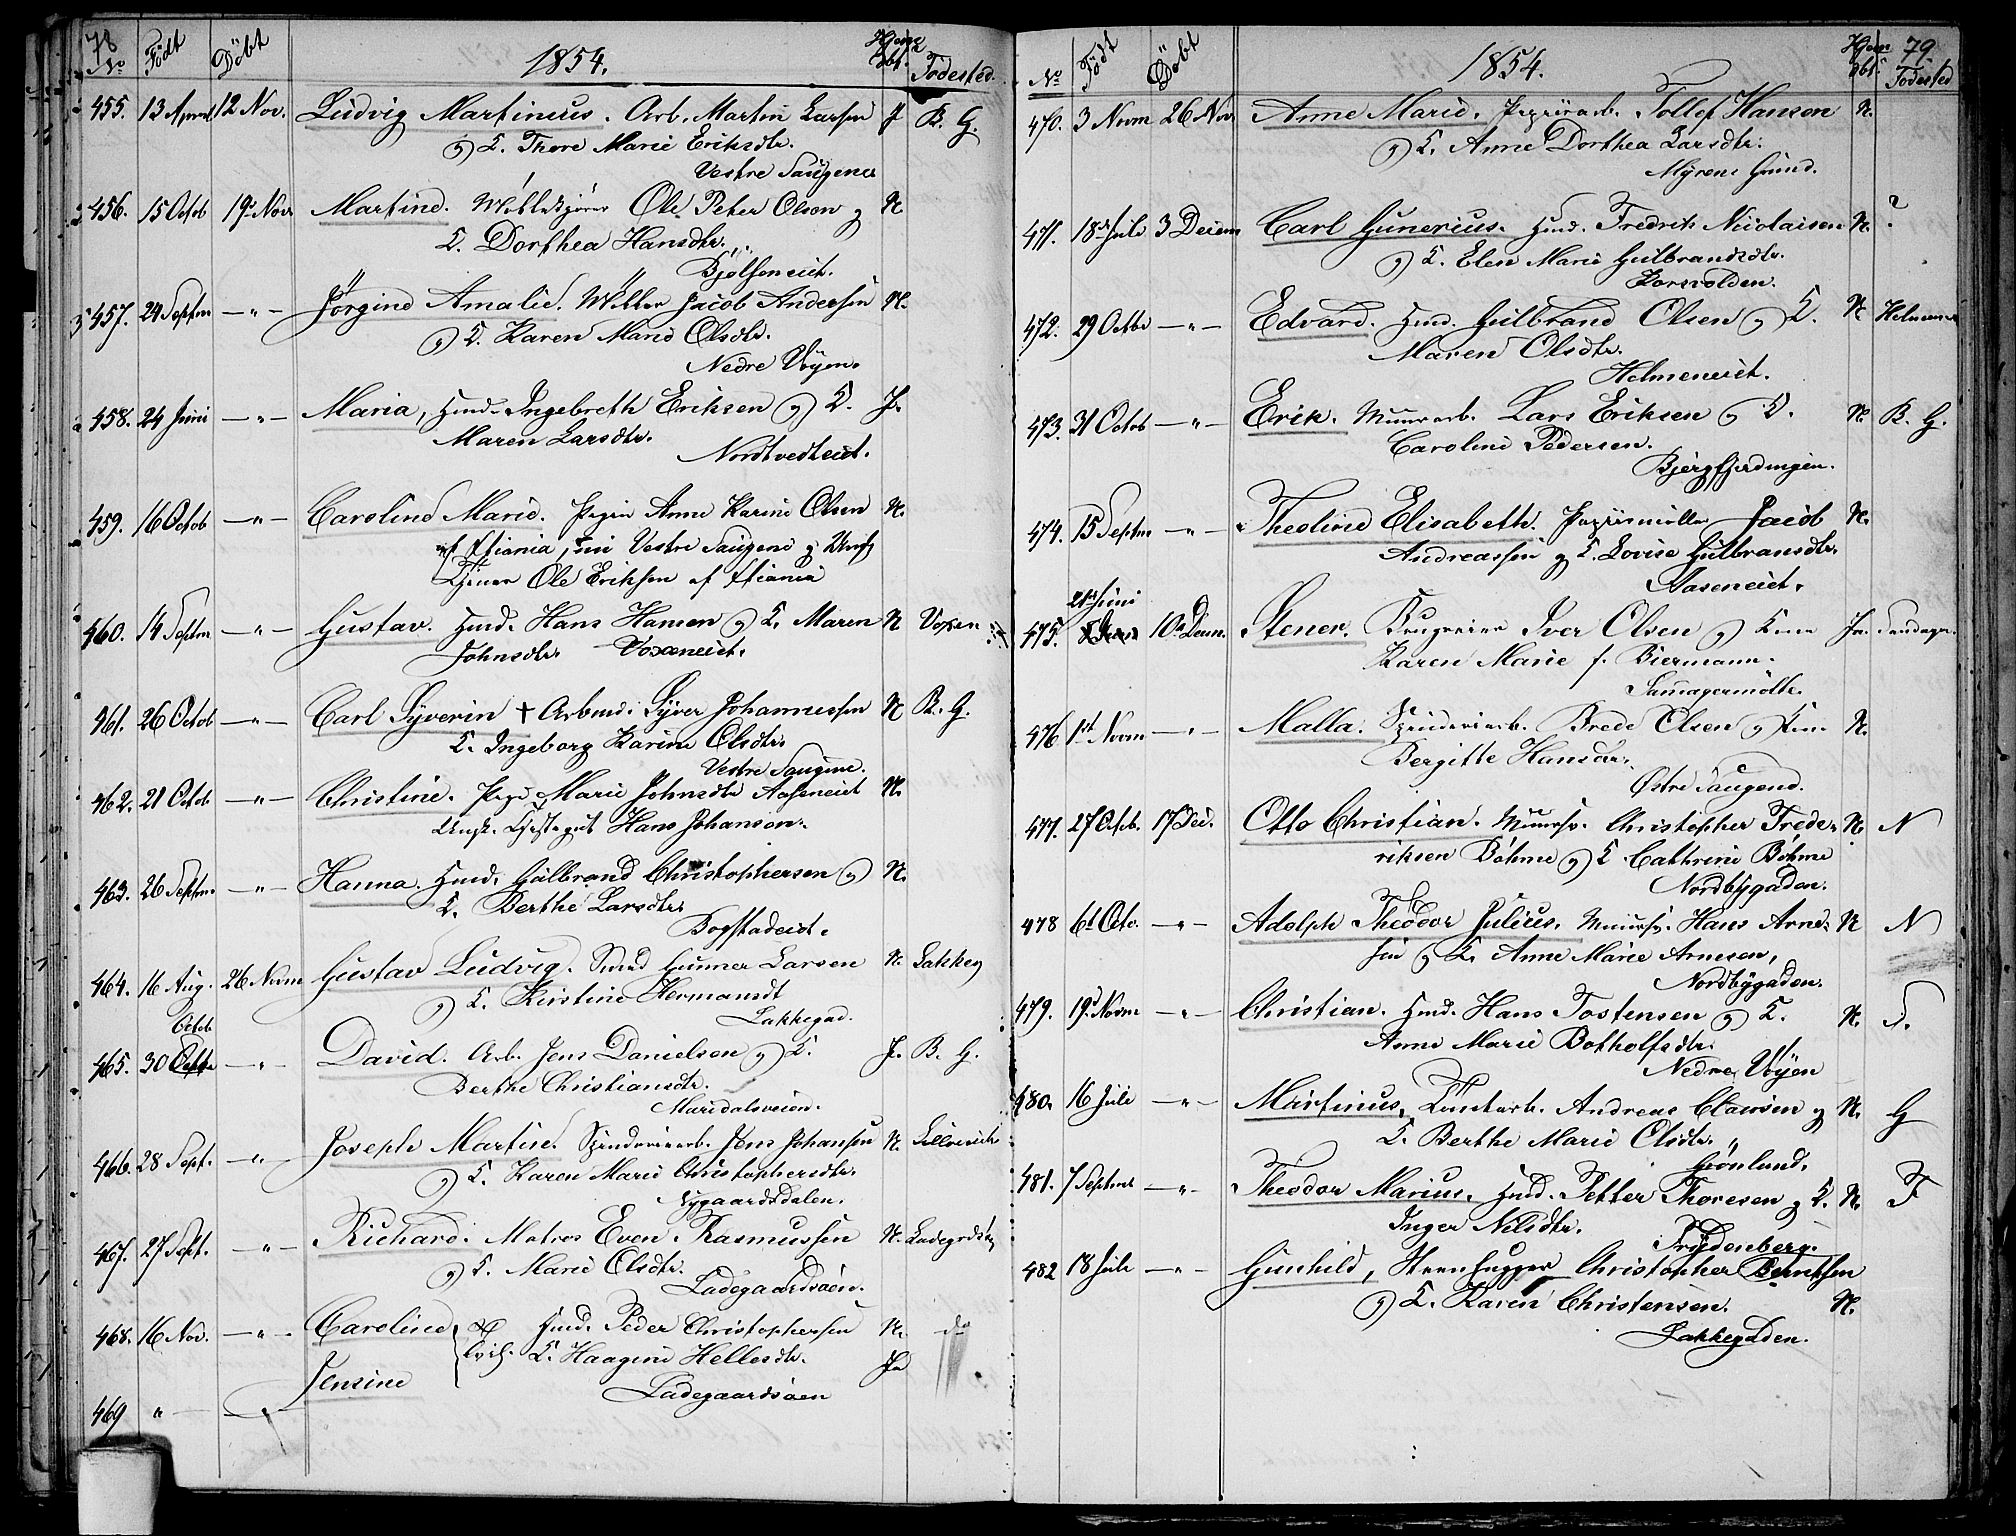 78
No Födt Döbt 1854. Hjemdbt. Födested.
455. 13 April 12 Nov. Ludvig Martinus. Arb. Martin Larsen J B. G.
og K. Thore Marie Eriksdtr.
Vestre Saugene
456. 15 Octob 19d Novr Martine. Möllekjörer Ole Peter Olsen og N
K. Dorthea Hansdtr.
Bjölseneiet.
457. 24 Septm — " — Jörgine Amalie. Möller Jacob Andersen N.
og K. Karen Marie Olsdtr.
Nedre Vöyen.
458. 24 Juni — " — Maria, Huusm. Ingebreth Eriksen og K. J.
Maren Larsdtr.
Nordtvedteiet.
459. 16 Octob — " — Caroline Marie. Pigen Anne Karine Olsen N.
af Xtiania, Vestre Saugene og Ungk
Ole Eriksen af Xtiania
460. 14 Septm — " — Gustav. Huusm. Hans Hansen og K. Maren N Voxen
Johnsdtr. Voxeneiet.
461. 26 Octob — " — Carl Syverin † Arbmd. Syver Johannessen N B. G.
K. Ingeborg Karine Olsdtr.
Vestre Saugene.
462. 21 Octob — " — Christine. Pige Marie Johnsdtr Aaseneiet N.
Ungk. Hans Johansen.
463. 26 Septm. — " — Hanna. Huusm. Gulbrand Christophersen og N.
K. Berthe Larsdtr.
Bogstadeiet.
464. 16 Aug. 26 Novm Gustav Ludvig. Smed Gunner Larsen N. Lakkeg
og K. Kirstine Hermansdt
Lakkegad.
Octob
465. 30 — " — David. Arb. Jens Danielsen og K. J. B. G.
Berthe Christiansdtr.
Maridalsveien.
466. 28 Sept. — " — Joseph Martin. Spinderiearb. Jens Johansen N.
og K. Karen Marie Christophersdtr.
Nygaardsdalen.
467. 27 Sept. — " — Richard. Matros Even Rasmussen N. Ladegrdsö
og K. Marie Olsdtr.
Ladegaardsöen.
468. 16 Nov. — " — Caroline Huusm. Peder Christophersen N. do
K. Haagine Hellesdtr. Ja
Jensine
Ladegaardsöen
469 " — " —
79.
No Födt Döbt 1854. Hjemdbt. Födested
470. 3 Novm 26 Nov Anne Marie. Papiirarb. Tollef Hansen N.
og K. Anne Dorthea Larsdtr.
Myrens Grund.
471. 18de Juli 3 Decem Carl Gunerius. Huusm. Fredrik Nicolaisen N. ?
og K. Elen Marie Gulbrandsdtr.
Korsvolden.
472. 29 Octbr — " — Edvard. Huusm. Gulbrand Olsen og K. N.
Maren Olsdtr.
Holmeneiet.
473. 31 Octob — " — Erik. Muurarb. Lars Eriksen og K. N. B. G.
Caroline Pedersen.
Bjergfjerdingen.
474. 15 Septm — " — Theoline Elisabeth. Papiirmöller Jacob N.
Andreassen og K. Lovise Gulbransdtr.
Aaseneiet.
21de Juni
475. 10de Decm. Stener. Brugseier Iver Olsen og Kone Ja.
Karen Marie f. Biermann.
476 1st Novm — " — Malla. Spinderiarb. Brede Olsen og Kone N.
Bergitte Hansdtr.
Östre Saugene.
477. 27 Octob. 17 Dec. Otto Christian. Muursv. Christopher Frede- N. N
riksen Böhme og K Cathrine Böhme
Nordbygaden.
478 6t Octo. — " — Adolph Theodor Julius. Muursv. Hans Arne- N N
sen og K. Anne Marie Arnesen,
Nordbygaden.
479. 19d Novm — " — Christian. Huusm. Hans Tostensen og K. N.
Anne Marie Botholfsdtr.
Nedre Vöyen
480. 16 Juli — " — Martinus, Andreas Clausen og N. G
K. Berthe Marie Olsdtr.
Grönland.
481. 7 Septmr — " — Theodor Marius. Huusm. Petter Thoresen og K. N. F
Inger Nilsdtr.
Frydenberg.
482 18 Juli — " — Gunhild, Steenhugger Christopher Berntsen
og K. Karen Christensen. N.
Lakkegaden.